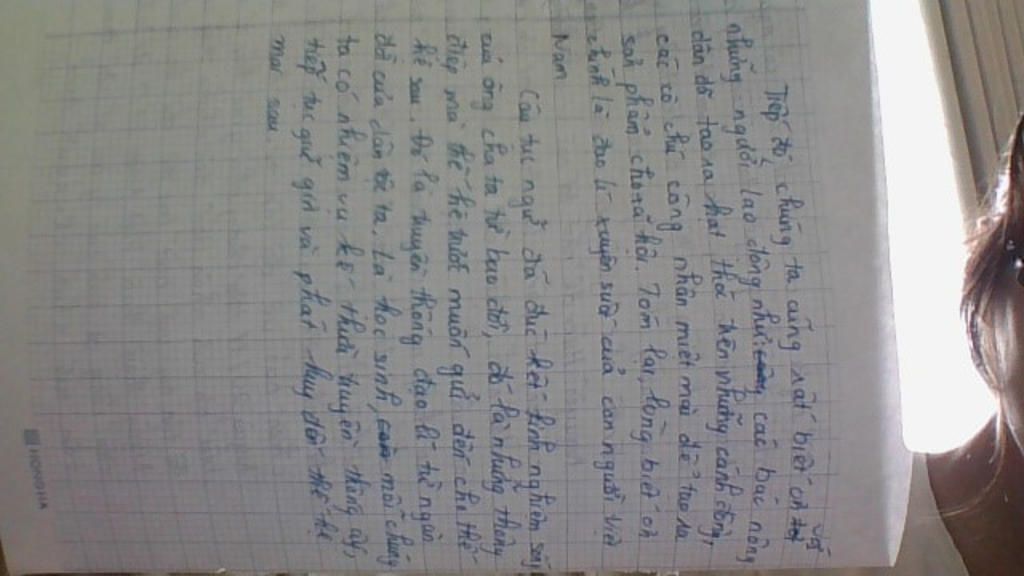 Tiếp đó chúng ta cũng rất biết ơn với
những người lao động như các bác nông
dân đã tạo ra hạt thóc trên những cánh đồng,
các cô chú công nhân miệt mài để tạo ra
sản phẩm cho xã hội. Tóm lại, lòng biết ơn
chính là đạo lí xuyên suốt của con người Việt
Nam
Câu tục ngữ đã đúc kết kinh nghiệm sống
của ông cha ta từ bao đời, đó là những thông
điệp mà thế hệ trước muốn gửi đến cho thế
hệ sau. Đó là truyền thống đạo lí từ ngàn
đời của dân tộc ta. Là học sinh, mỗi chúng
ta có nhiệm vụ kế thừa truyền thống ấy,
tiếp tục giữ gìn và phát huy đến thế hệ
mai sau.
HONG HA